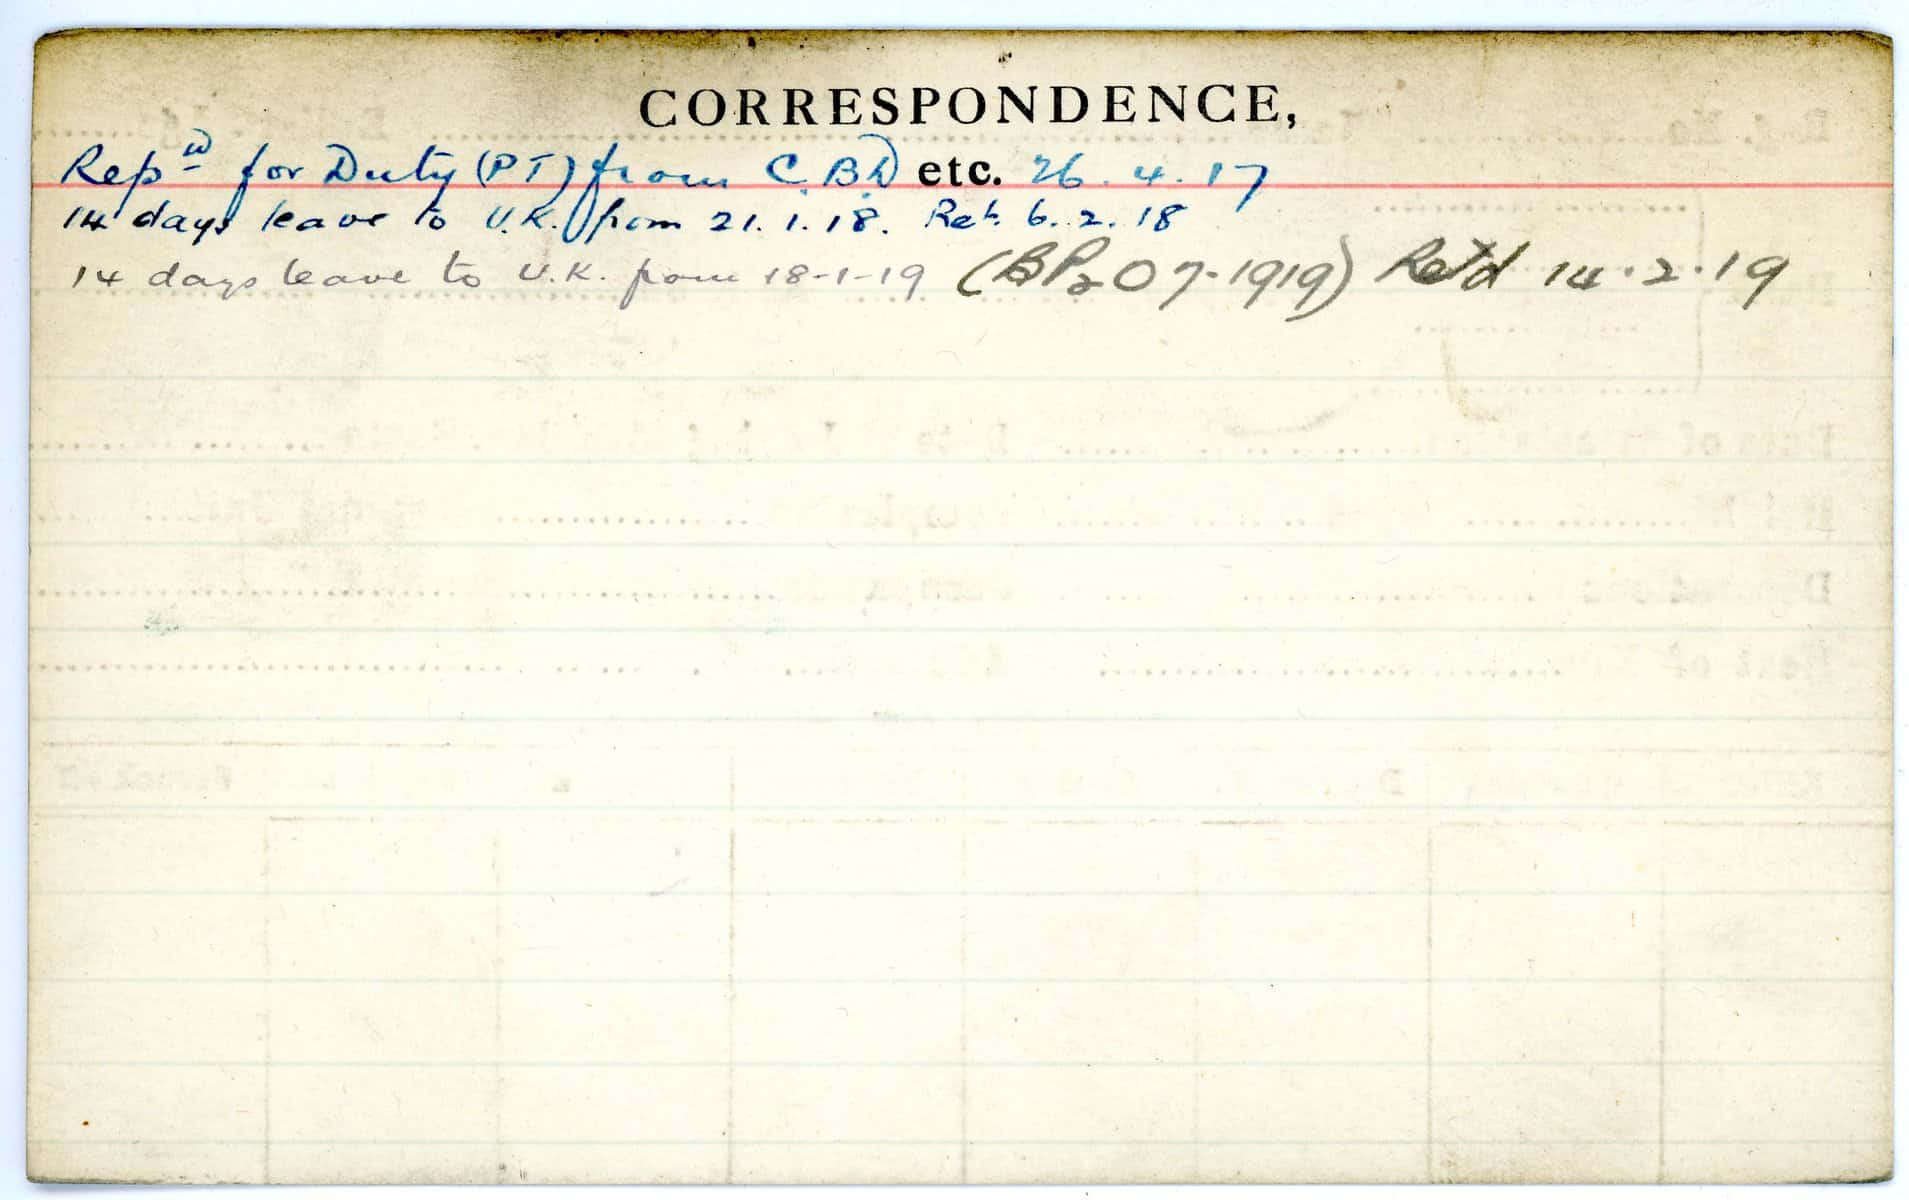 CORRESPONDENCE,
Rep^d for Duty (PT) from C.B.D etc. 26.4.17
14 days leave to U.K. from 21.1.18. Ret. 6.2.18
14 days leave to U.K. from 18-1-19 (BP2 07-1919) Ret'd 14.2.19